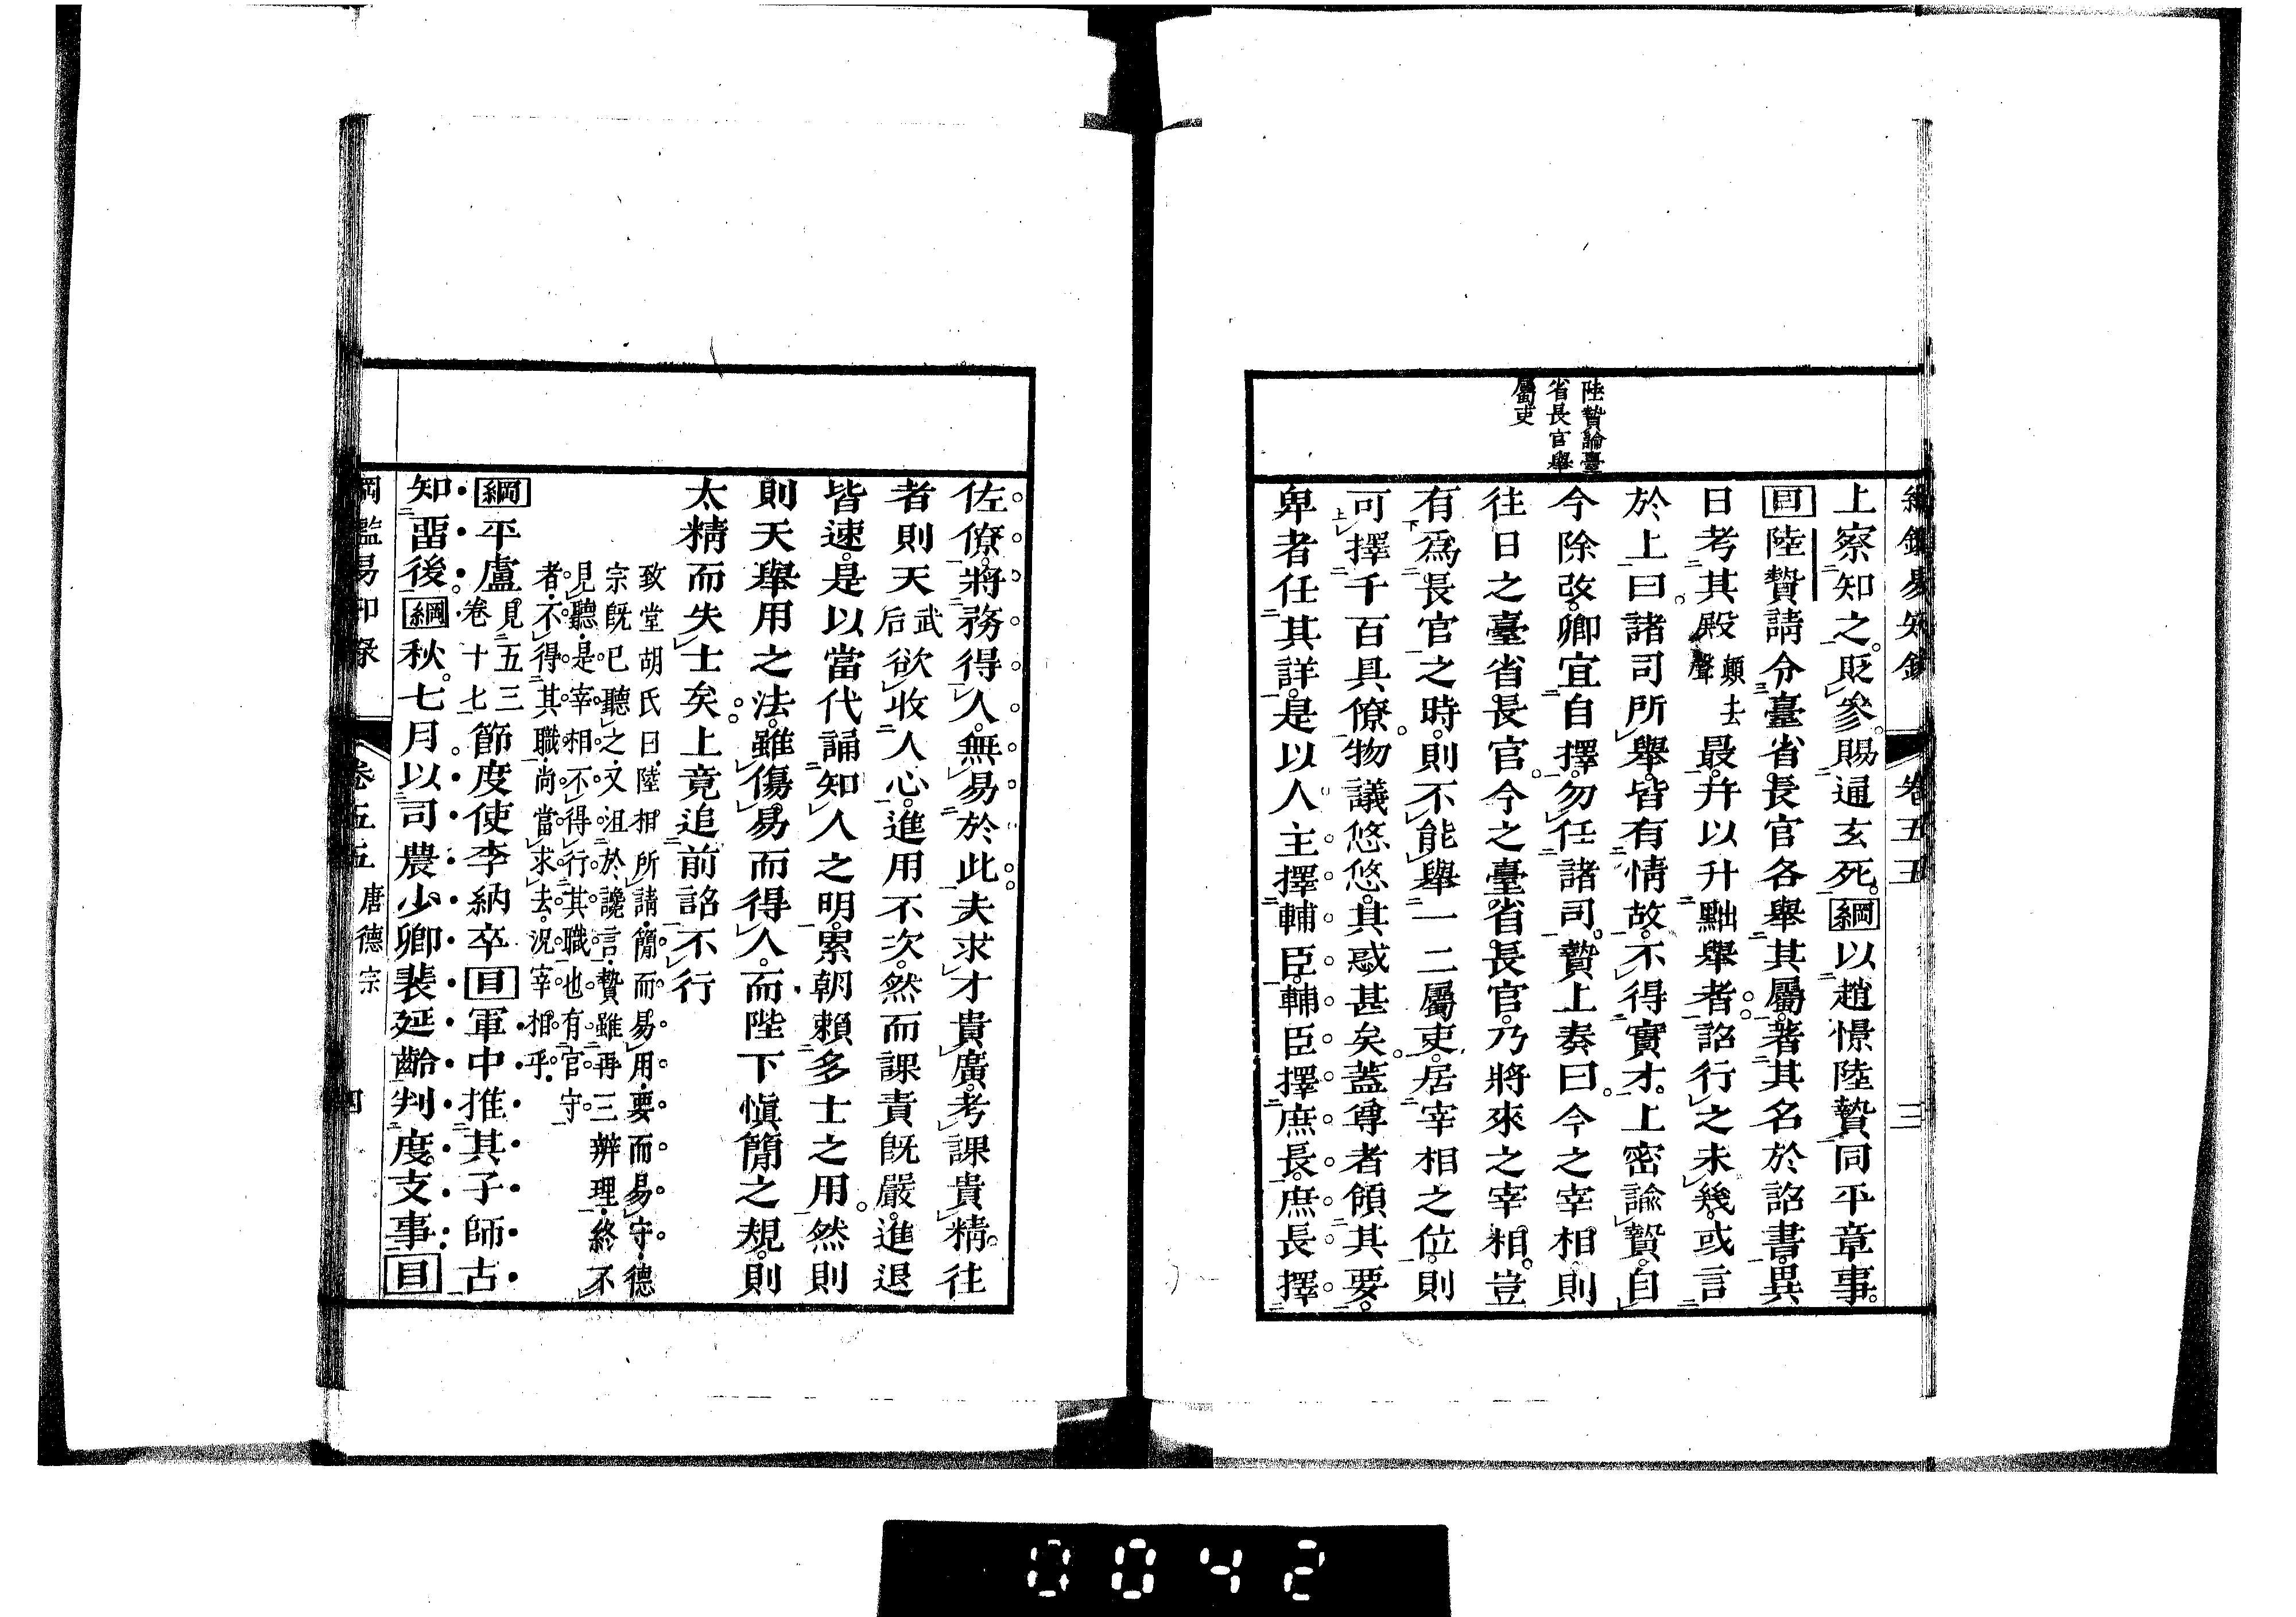 綱鑑易知錄 卷五五 三
陸贄論臺
省長官舉
屬吏
上察知之。貶參。賜通玄死。綱以趙憬陸贄同平章事。
目陸贄請令臺省長官各舉其屬。著其名於詔書。異
日考其殿顛去聲最。幷以升黜舉者。詔行之未幾。或言
於上曰。諸司所舉。皆有情故。不得實才。上密諭贄。自
今除改。卿宜自擇。勿任諸司。贄上奏曰。今之宰相則
往日之臺省長官。今之臺省長官。乃將來之宰相。豈
有爲長官之時。則不能舉一二屬吏。居宰相之位。則
可擇千百具僚。物議悠悠。其惑甚矣。蓋尊者領其要。
卑者任其詳。是以人主擇輔臣。輔臣擇庶長。庶長擇
佐僚。將務得人。無易於此。夫求才貴廣。考課貴精。往
者則天武后欲收人心。進用不次。然而課責既嚴。進退
皆速。是以當代誦知人之明。累朝賴多士之用。然則
則天舉用之法。雖傷易而得人。而陛下愼簡之規。則
太精而失士矣。上竟追前詔不行
致堂胡氏曰。陸相所請。簡而易用。要而易守。德
宗既已聽之。又沮於讒言。贄雖再三辨理。終不
見聽。是宰相不得行其職也。有官守
者。不得其職。尚當求去。況宰相乎。
綱平盧見五三卷十七節度使李納卒目軍中推其子師古
知畱後。綱秋。七月。以司農少卿裴延齡判度支事。目
綱鑑易知錄 卷五五 唐德宗 四
0042